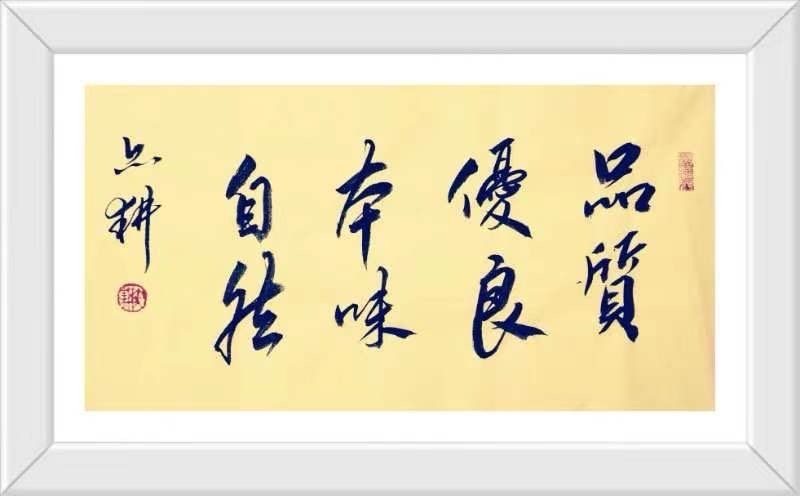 品質
優良
本味
自然